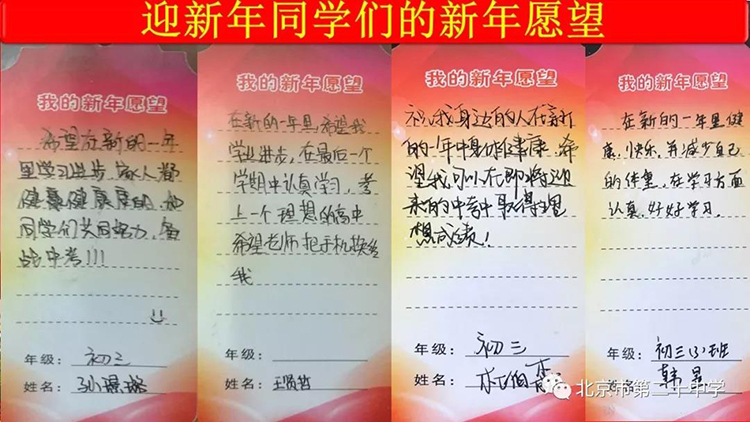 迎新年同学们的新年愿望
我的新年愿望
希望在新的一年
里学习进步,家人都
健健康康的,和
同学们共同努力,备
战中考!!!
年级:初三
姓名:
我的新年愿望
在新的一年里,希望我
学业进步,在最后一个
学期中认真学习,考
上一个理想的高中
希望老师把手机换给
我
年级:
姓名:王贤哲
我的新年愿望
祝我身边的人在新
的一年中身体健康,希
望我可以在即将迎
来的中考中取得理
想成绩!
年级:初三
姓名:
我的新年愿望
在新的一年里健
康,快乐,并减少自己
的体重,在学习方面
认真,好好学习.
年级:初三(3)班
姓名:韩昊
北京市第二十中学